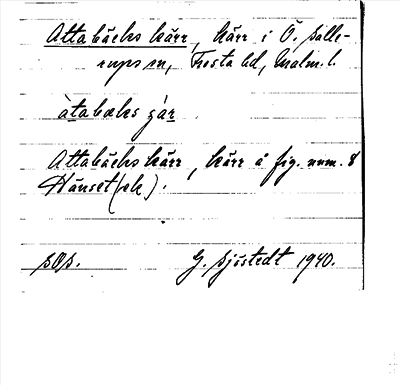 Attabäcks kärr, kärr i Ö. Salle-
rups sn, Frosta hd, Malm. l.
àtabæks ɕár
Attabäcks kärr, kärr å fig. num. 8
Hänset (ek).
SOS.
G. Sjöstedt 1940.